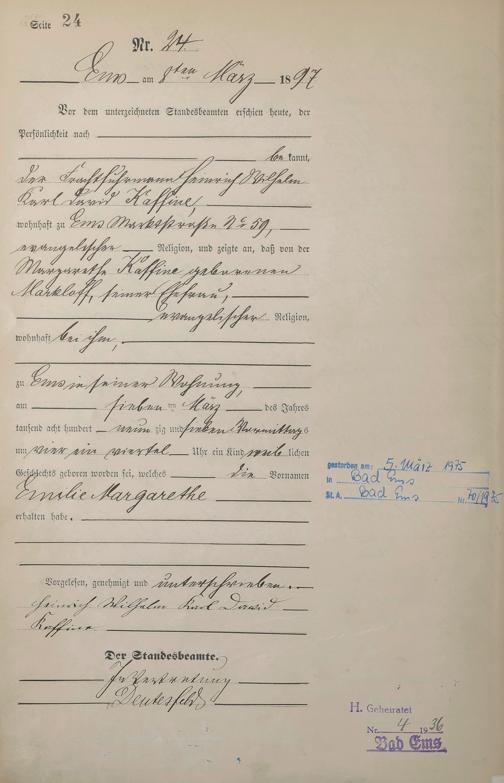 Seite 24
Nr. 24
Ems am 8ten März 1897
Vor dem unterzeichneten Standesbeamten erschien heute, der
Persönlichkeit nach
bekannt,
der Frachtfuhrmann Heinrich Wilhelm
Karl David Kaffine,
wohnhaft zu Ems Marktstraße No 59,
evangelischer Religion, und zeigte an, daß von der
Margarethe Kaffine geborenen
Markloff, seiner Ehefrau,
evangelischer Religion,
wohnhaft bei ihm,
zu Ems in seiner Wohnung,
am sieben ten März des Jahres
tausend acht hundert neunzig und sieben Vormittags
um vier ein viertel Uhr ein Kind weiblichen
Geschlechts geboren worden sei, welches die Vornamen
Emilie Margarethe
erhalten habe.
gestorben am: 5. März 1975
in Bad Ems
St. A. Bad Ems Nr. 70/1975
Vorgelesen, genehmigt und unterschrieben.
Heinrich Wilhelm Karl David
Kaffine
Der Standesbeamte.
In Vertretung
H. Geheiratet
Nr. 4 1936
Bad Ems